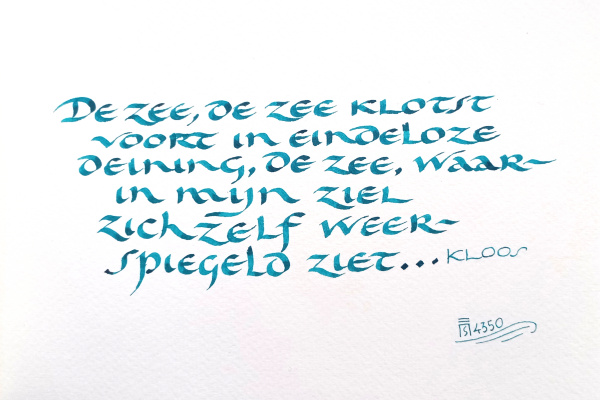 De zee, de zee klotst
voort in eindeloze
deining, de zee, waar-
in mijn ziel
zichzelf weer-
spiegeld ziet... KLOOS
4350